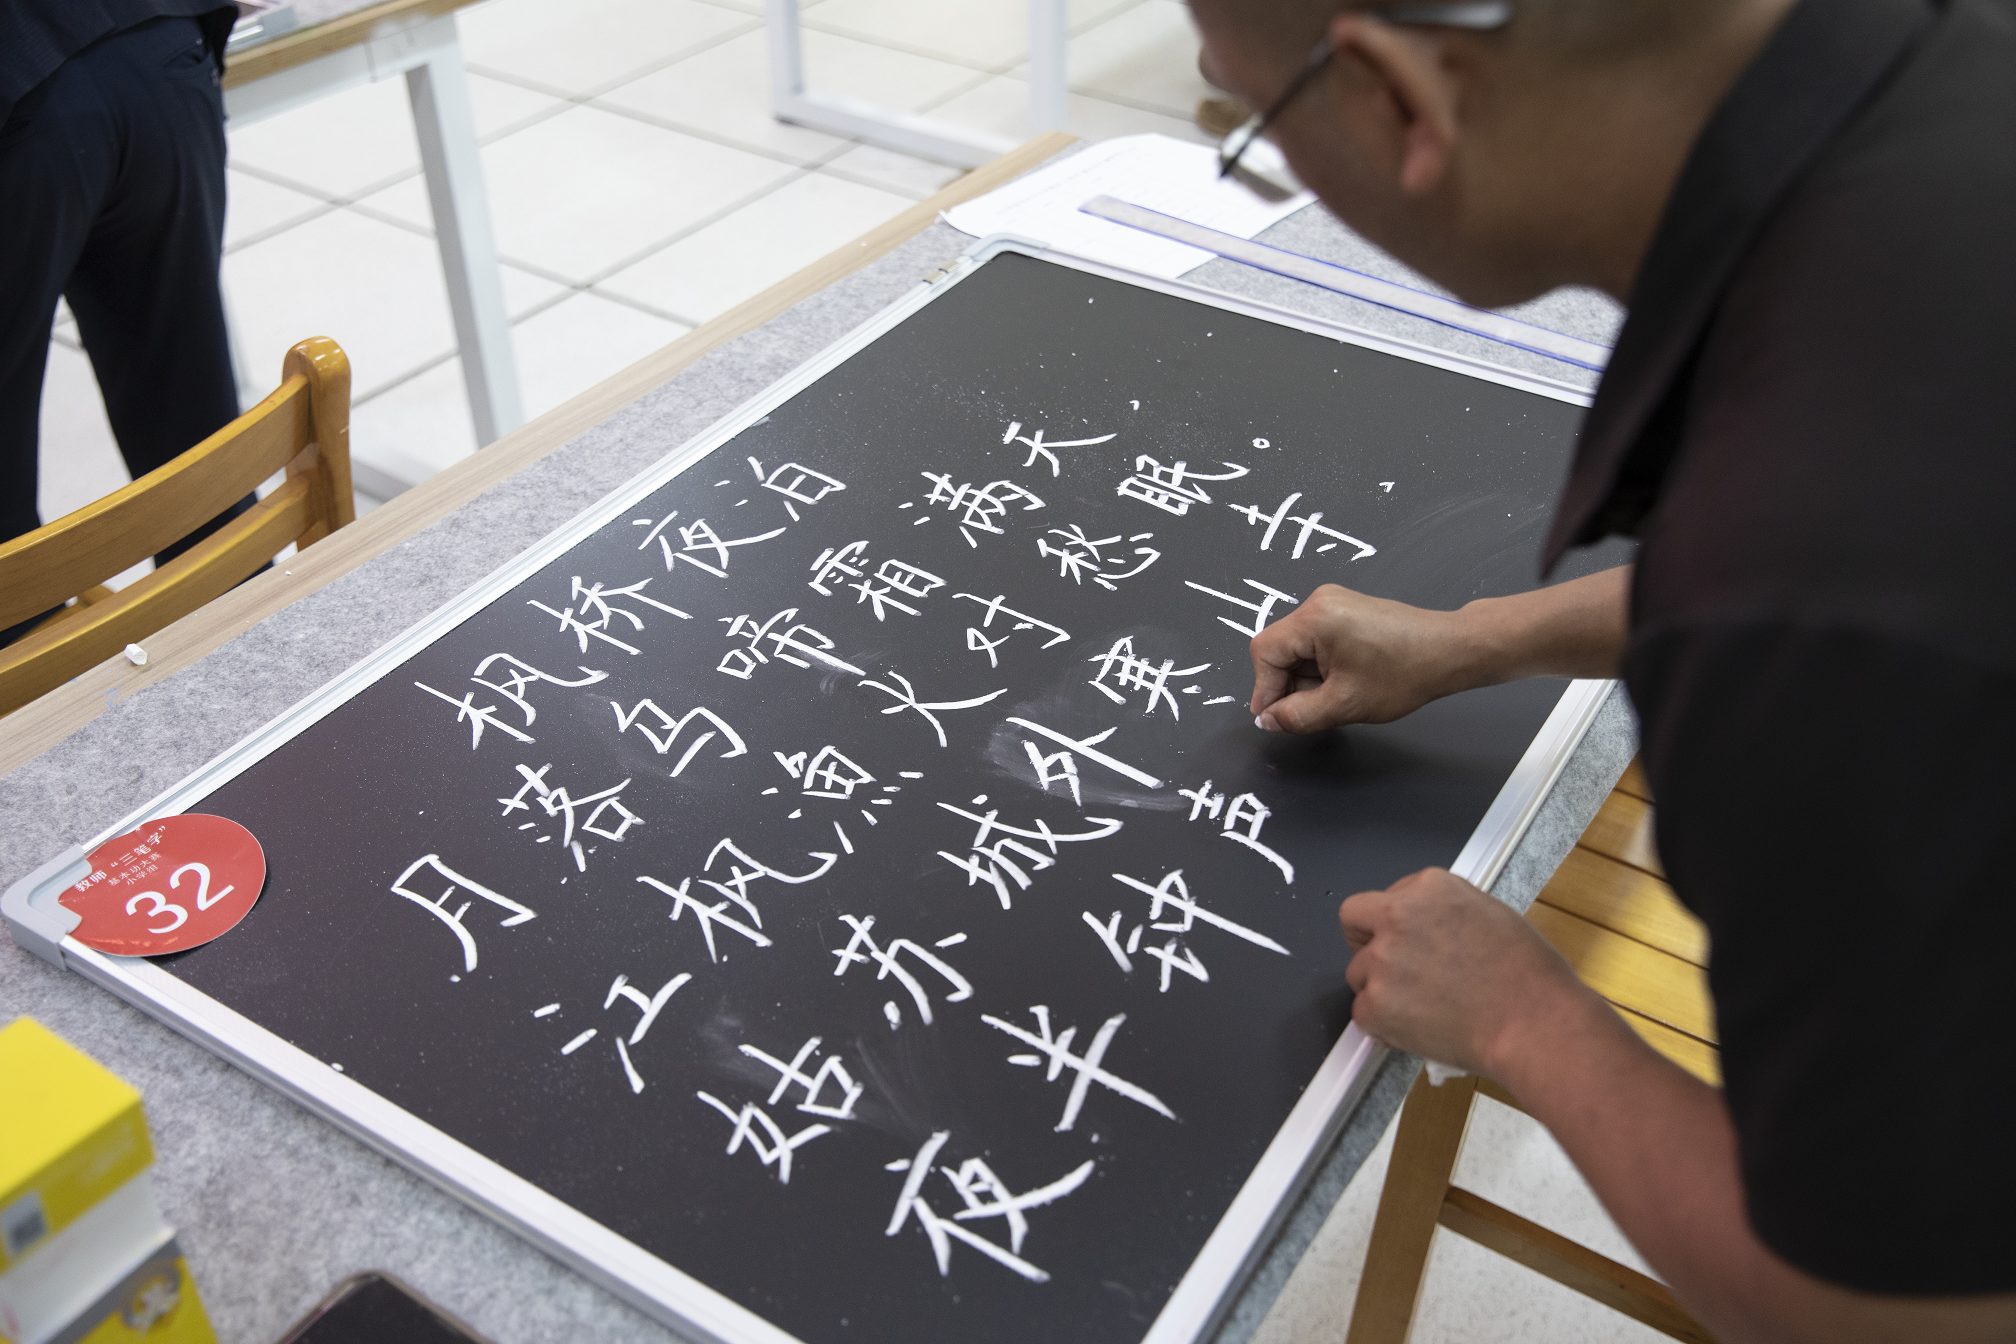 枫桥夜泊
月落乌啼霜满天,
江枫渔火对愁眠。
姑苏城外寒山寺,
夜半钟声
教师“三笔字”
基本功大赛
小学组
32